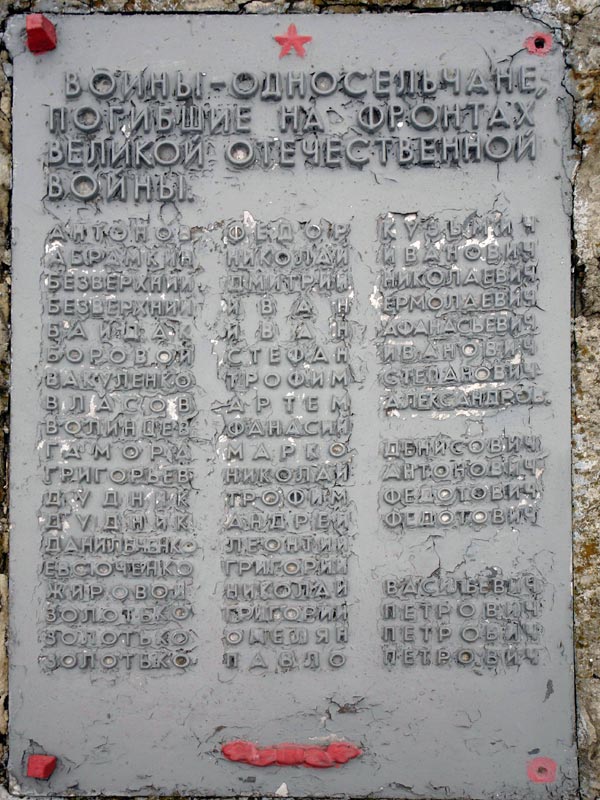 ВОИНЫ-ОДНОСЕЛЬЧАНЕ,
ПОГИБШИЕ НА ФРОНТАХ
ВЕЛИКОЙ ОТЕЧЕСТВЕННОЙ
ВОЙНЫ.
АНТОНОВ ФЕДОР КУЗЬМИЧ
АБРАМКИН НИКОЛАЙ ИВАНОВИЧ
БЕЗВЕРХНИЙ ДМИТРИЙ НИКОЛАЕВИЧ
БЕЗВЕРХНИЙ ИВАН ЕРМОЛАЕВИЧ
БАЙДАК ИВАН АФАНАСЬЕВИЧ
БОРОВОЙ СТЕФАН ИВАНОВИЧ
ВАКУЛЕНКО ТРОФИМ СТЕПАНОВИЧ
ВЛАСОВ АРТЕМ АЛЕКСАНДРОВ.
ВОЛИНЦЕВ ФАНАСИЙ
ГАМОРА МАРКО ДЕНИСОВИЧ
ГРИГОРЬЕВ НИКОЛАЙ АНТОНОВИЧ
ДУДНИК ТРОФИМ ФЕДОТОВИЧ
ДУДНИК АНДРЕЙ ФЕДОТОВИЧ
ДАНИЛЬЧЕНКО ЛЕОНТИЙ
ЕВСЮЧЕНКО ГРИГОРИЙ
ЖИРОВОЙ НИКОЛАЙ ВАСИЛЬЕВИЧ
ЗОЛОТЬКО ГРИГОРИЙ ПЕТРОВИЧ
ЗОЛОТЬКО ОМЕЛЯН ПЕТРОВИЧ
ЗОЛОТЬКО ПАВЛО ПЕТРОВИЧ